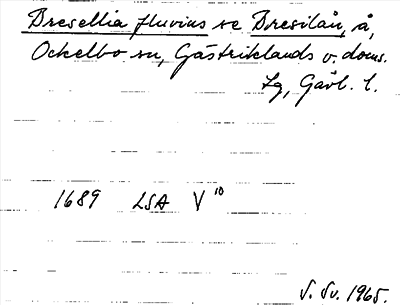 Bresellia fluvius se Bresilån, å,
Ockelbo sn, Gästriklands v. doms.
lg, Gävl. l.
1689 LSA V 10
S. Sv. 1965.